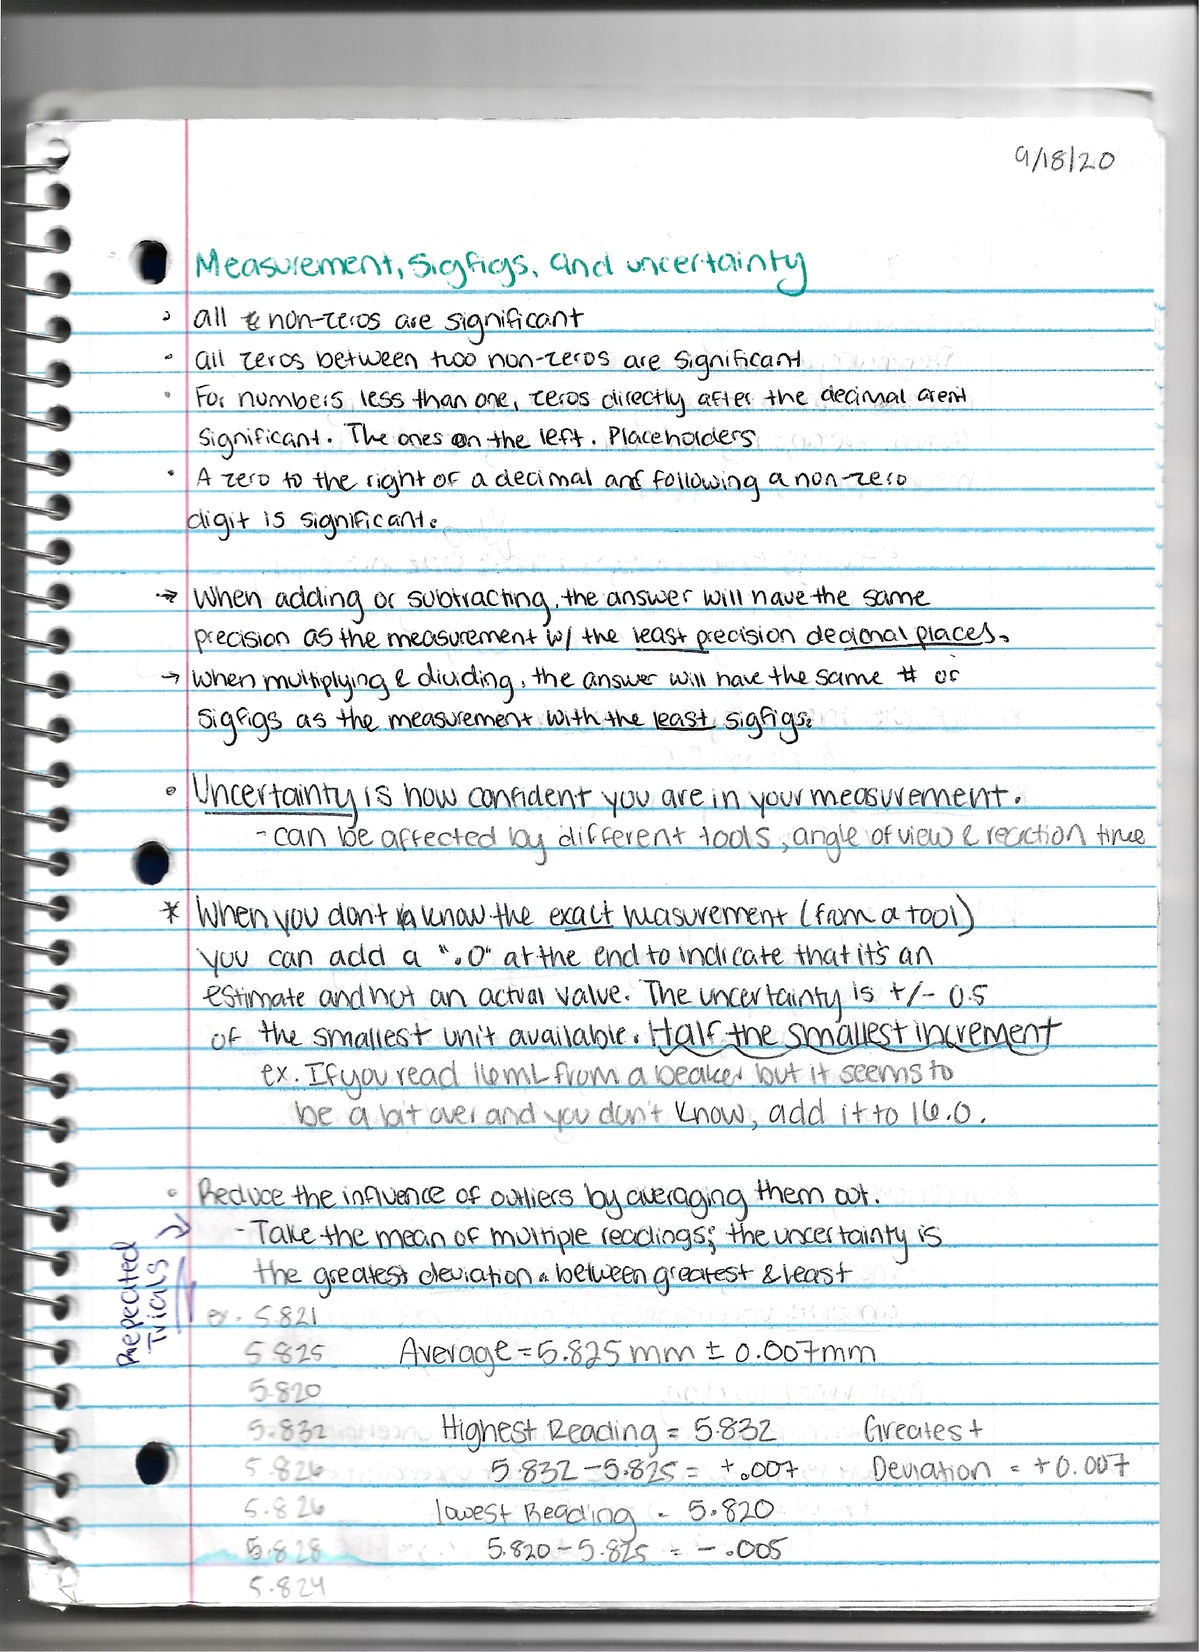 9/18/20
Measurement, Sigfigs, and uncertainty
• all non-zeros are significant
• all zeros between two non-zeros are significant
• For numbers less than one, zeros directly after the decimal arent
significant. The ones on the left. Placeholders
• A zero to the right of a decimal and following a non-zero
digit is significant.
→ When adding or subtracting, the answer will have the same
precision as the measurement w/ the least precision decimal places.
→ When multiplying & dividing, the answer will have the same # of
sigfigs as the measurement with the least sigfigs.
• Uncertainty is how confident you are in your measurement.
- can be affected by different tools, angle of view & reaction time
* When you don't know the exact measurement (from a tool)
you can add a ".0" at the end to indicate that it's an
estimate and not an actual value. The uncertainty is +/- 0.5
of the smallest unit available. Half the smallest increment
ex. If you read 16mL from a beaker but it seems to
be a bit over and you don't know, add it to 16.0.
• Reduce the influence of outliers by averaging them out.
- Take the mean of multiple readings; the uncertainty is
the greatest deviation. between greatest & least
Repeated
Trials
ex. 5.821
5.825 Average = 5.825 mm ± 0.007mm
5.820
5.832 Highest Reading = 5.832 Greatest
5.826 5.832 - 5.825 = +.007 Deviation = +0.007
5.826 lowest Reading = 5.820
5.828 5.820 - 5.825 = -.005
5.824